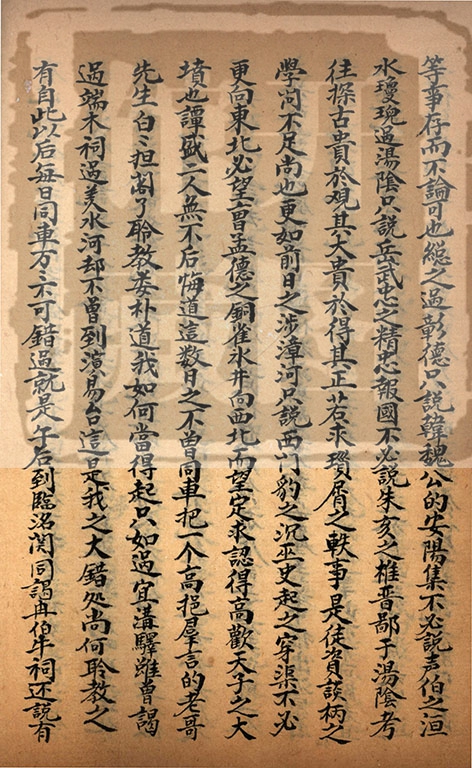 等事存而不論可也總之過彰德只說韓魏公的安陽集不必說声伯之洹
水瓊琬過湯陰只說岳武忠之精忠報國不必說朱亥之椎晋鄙于湯陰考
往探古貴於观其大貴於得其正若求瑣屑之軼事是徒資談柄之
學问不足尚也更如前日之涉漳河只說西門豹之沉巫史起之穿渠不必
更向東北必望曹孟德之銅雀氷井向西北而望定求認得高歡天子之大
墳也譚盛二人無不后悔道這數日之不曾同車把一个高挹羣言的老哥
先生白〻担阁了聆教娄朴道我如何當得起只如過宜溝驛雖曾謁
過端木祠過羑水河却不曾到演易台這是我之大錯処尚何聆教之
有自此以后每日同車万〻不可錯過就是午后到臨洺関同謁冉伯牛祠还說有